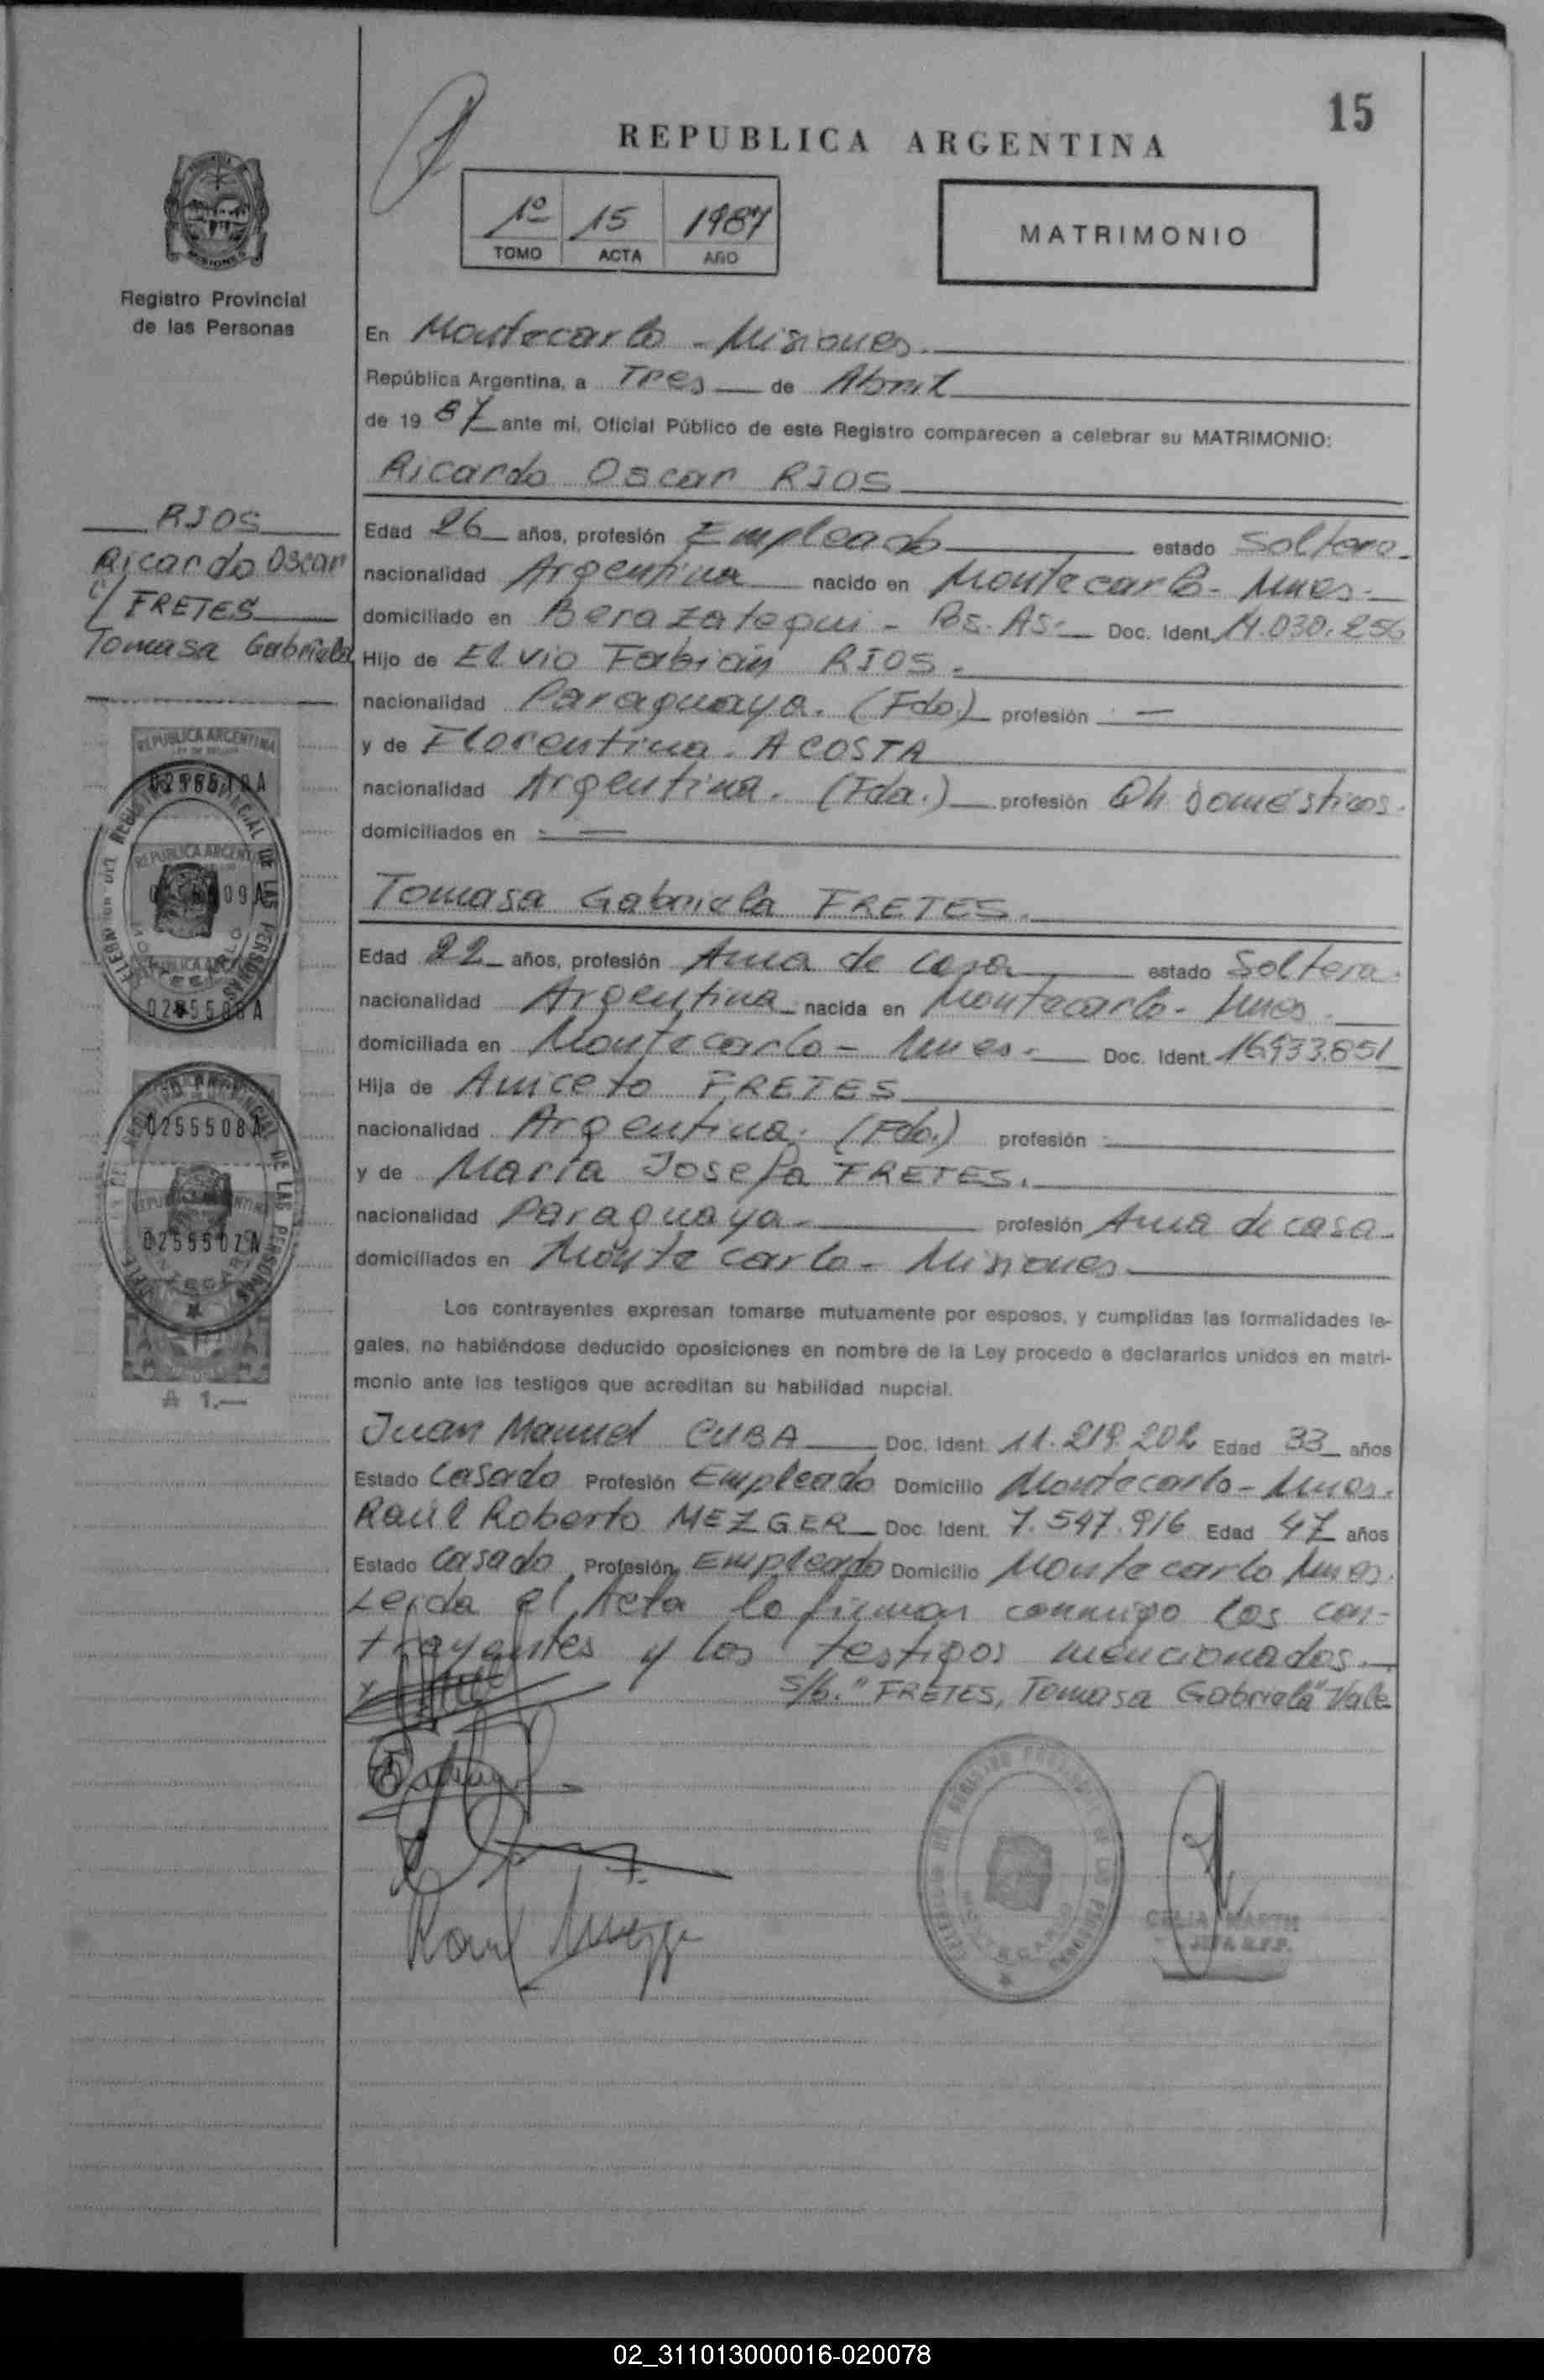 15
REPUBLICA ARGENTINA
1º 15 1987
TOMO ACTA AÑO
MATRIMONIO
Registro Provincial
de las Personas
En Montecarlo - Misiones.
República Argentina, a Tres de Abril
de 19 87 ante mí, Oficial Público de este Registro comparecen a celebrar su MATRIMONIO:
Ricardo Oscar RIOS
RIOS
Ricardo Oscar
c/ FRETES
Tomasa Gabriela
Edad 26 años, profesión Empleado estado Soltero.
nacionalidad Argentina nacido en Montecarlo - Mnes.
domiciliado en Berazategui - Bs. As. Doc. Ident. 14.030.256
Hijo de Elvio Fabián RIOS.
nacionalidad Paraguaya. (Fdo.) profesión —
y de Florentina. ACOSTA
nacionalidad Argentina. (Fda.) profesión Qh Domésticos.
domiciliados en —
Tomasa Gabriela FRETES.
Edad 22 años, profesión Ama de casa estado Soltera.
nacionalidad Argentina nacida en Montecarlo - Mnes.
domiciliada en Montecarlo - Mnes. Doc. Ident. 16.933.851
Hija de Aniceto FRETES
nacionalidad Argentina. (Fdo.) profesión
y de María Josefa FRETES.
nacionalidad Paraguaya. profesión Ama de casa.
domiciliados en Montecarlo - Misiones.
Los contrayentes expresan tomarse mutuamente por esposos, y cumplidas las formalidades le-
gales, no habiéndose deducido oposiciones en nombre de la Ley procedo a declararlos unidos en matri-
monio ante los testigos que acreditan su habilidad nupcial.
Juan Manuel CUBA Doc. Ident. 11.219.202 Edad 33 años
Estado Casado Profesión Empleado Domicilio Montecarlo - Mnes.
Raúl Roberto MEZGER Doc. Ident. 7.547.916 Edad 47 años
Estado Casado Profesión Empleado Domicilio Montecarlo Mnes.
Leída el Acta la firman conmigo los con-
trayentes y los testigos mencionados.
S/b. "FRETES, Tomasa Gabriela" Vale
REPUBLICA ARGENTINA
0255508A
0255507A
A 1.—
CELIA MARTH
JEFA R.P.P.
02_311013000016-020078